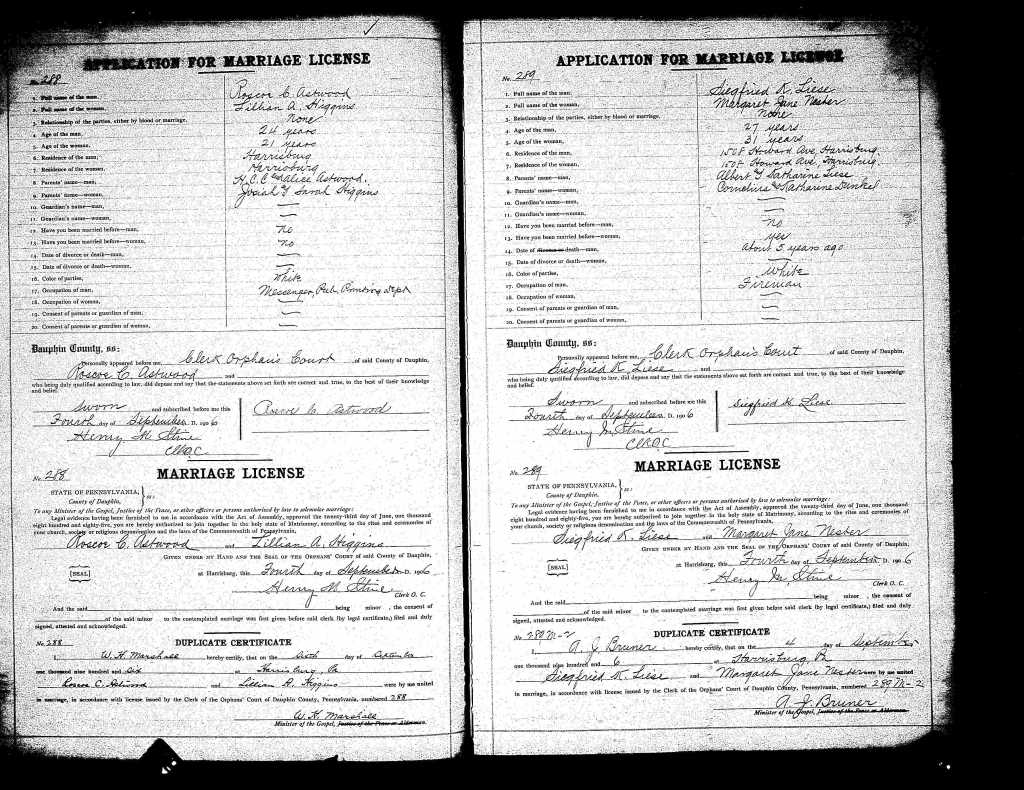 APPLICATION FOR MARRIAGE LICENSE
No. 288
1. Full name of the man, Roscoe C. Astwood
2. Full name of the woman, Lillian A. Higgins
3. Relationship of the parties, either by blood or marriage, None
4. Age of the man, 24 years
5. Age of the woman, 21 years
6. Residence of the man, Harrisburg
7. Residence of the woman, Harrisburg
8. Parents' name—man, H. C. C. & Alice Astwood.
9. Parents' name—woman, Josiah & Sarah Higgins
10. Guardian's name—man, —
11. Guardian's name—woman, —
12. Have you been married before—man, No
13. Have you been married before—woman, No
14. Date of divorce or death—man, —
15. Date of divorce or death—woman, —
16. Color of parties, White
17. Occupation of man, Messenger, Pub. Printing Dept
18. Occupation of woman, —
19. Consent of parents or guardian of man, —
20. Consent of parents or guardian of woman,
Dauphin County, ss:
Personally appeared before me, Clerk Orphan's Court, of said County of Dauphin,
Roscoe C. Astwood and
who being duly qualified according to law, did depose and say that the statements above set forth are correct and true, to the best of their knowledge
and belief.
Sworn and subscribed before me this
Fourth day of September D. 1906
Henry M. Stine
Clk O.C.
Roscoe C. Astwood
No. 288
MARRIAGE LICENSE
STATE OF PENNSYLVANIA,
County of Dauphin, } ss:
To any Minister of the Gospel, Justice of the Peace, or other officers or persons authorized by law to solemnize marriage:
Legal evidence having been furnished to me in accordance with the Act of Assembly, approved the twenty-third day of June, one thousand
eight hundred and eighty-five, you are hereby authorized to join together in the holy state of Matrimony, according to the rites and ceremonies of
your church, society or religious denomination and the laws of the Commonwealth of Pennsylvania.
Roscoe C. Astwood and Lillian A. Higgins
GIVEN UNDER MY HAND AND THE SEAL OF THE ORPHANS' COURT of said County of Dauphin,
[SEAL] at Harrisburg, this Fourth day of September D. 1906
Henry M. Stine
Clerk O. C.
And the said being minor, the consent of
of the said minor to the contemplated marriage was first given before said clerk (by legal certificate,) filed and duly
signed, attested and acknowledged.
No. 288
DUPLICATE CERTIFICATE
I, W. H. Marshall hereby certify, that on the Sixth day of September
one thousand nine hundred and Six at Harrisburg, Pa
Roscoe C. Astwood and Lillian A. Higgins were by me united
in marriage, in accordance with license issued by the Clerk of the Orphans' Court of Dauphin County, Pennsylvania, numbered 288
W. H. Marshall
Minister of the Gospel, Justice of the Peace or Alderman.
APPLICATION FOR MARRIAGE LICENSE
No. 289
1. Full name of the man, Siegfried K. Liese
2. Full name of the woman, Margaret Jane Nester
3. Relationship of the parties, either by blood or marriage, None
4. Age of the man, 27 years
5. Age of the woman, 31 years
6. Residence of the man, 1508 Howard Ave, Harrisburg
7. Residence of the woman, 1508 Howard Ave, Harrisburg.
8. Parents' name—man, Albert & Katharine Liese
9. Parents' name—woman, Cornelius & Katharine Dunkel
10. Guardian's name—man, —
11. Guardian's name—woman, —
12. Have you been married before—man, No
13. Have you been married before—woman, yes
14. Date of divorce or death—man, About 5 years ago
15. Date of divorce or death—woman, —
16. Color of parties, White
17. Occupation of man, Fireman
18. Occupation of woman, —
19. Consent of parents or guardian of man, —
20. Consent of parents or guardian of woman, —
Dauphin County, ss:
Personally appeared before me, Clerk Orphan's Court, of said County of Dauphin,
Siegfried K. Liese and
who being duly qualified according to law, did depose and say that the statements above set forth are correct and true, to the best of their knowledge
and belief.
Sworn and subscribed before me this
Fourth day of September 1906
Henry M. Stine
Clk O.C.
Siegfried K. Liese
No. 289
MARRIAGE LICENSE
STATE OF PENNSYLVANIA,
County of Dauphin, } ss:
To any Minister of the Gospel, Justice of the Peace, or other officers or persons authorized by law to solemnize marriage:
Legal evidence having been furnished to me in accordance with the Act of Assembly, approved the twenty-third day of June, one thousand
eight hundred and eighty-five, you are hereby authorized to join together in the holy state of Matrimony, according to the rites and ceremonies of
your church, society or religious denomination and the laws of the Commonwealth of Pennsylvania.
Siegfried K. Liese and Margaret Jane Nester
GIVEN UNDER MY HAND AND THE SEAL OF THE ORPHANS' COURT of said County of Dauphin,
[SEAL] at Harrisburg, this Fourth day of September D. 1906
Henry M. Stine
Clerk O. C.
And the said being minor, the consent of
of the said minor to the contemplated marriage was first given before said clerk (by legal certificate,) filed and duly
signed, attested and acknowledged.
No. 289 M-2
DUPLICATE CERTIFICATE
I, A. J. Bruner hereby certify, that on the 4 day of September
one thousand nine hundred and 6 at Harrisburg Pa
Siegfried K. Liese and Margaret Jane Nester were by me united
in marriage, in accordance with license issued by the Clerk of the Orphans' Court of Dauphin County, Pennsylvania, numbered 289 M-2
A. J. Bruner
Minister of the Gospel, Justice of the Peace or Alderman.